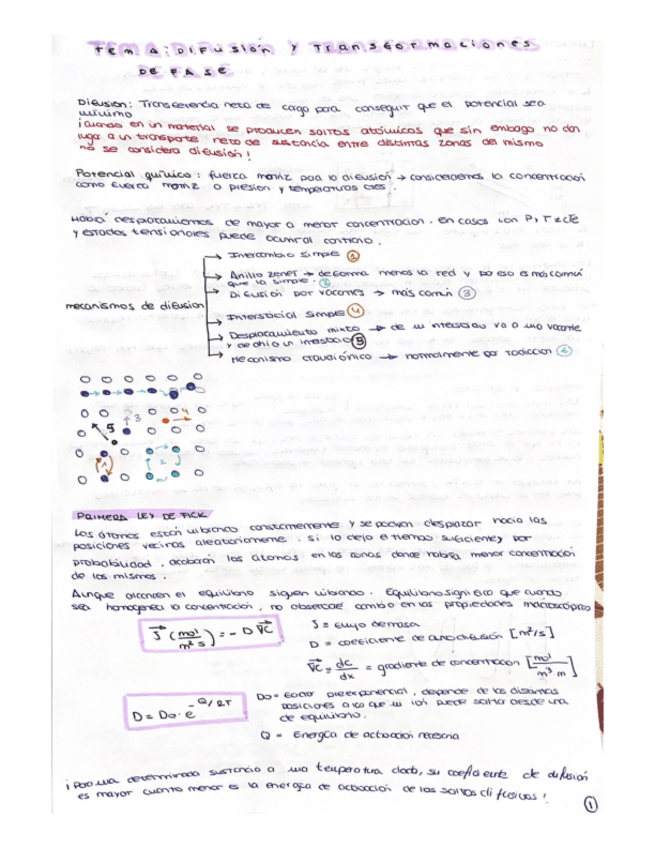 TEMA 4: DIFUSIÓN Y TRANSFORMACIONES
DE FASE
Difusión: Transferencia neta de carga para conseguir que el potencial sea
mínimo
¡Cuando en un material se producen saltos atómicos que sin embargo no dan
lugar a un transporte neto de sustancia entre distintas zonas del mismo
no se considera difusión!
Potencial químico: fuerza motriz para la difusión → consideramos la concentración
como fuerza motriz a presión y temperaturas ctes.
Habrá desplazamientos de mayor a menor concentración. En casos con P y T ≠ cte
y estados tensionales puede ocurrir al contrario.
Intercambio simple 1
Anillo zener → deforma menos la red y por eso es más común
que la simple. 2
mecanismos de difusión
Difusión por vacantes → más común 3
Intersticial simple 4
Desplazamiento mixto → de un intersticio va a una vacante
y de ahí a un intersticio 5
Mecanismo crowdiónico → normalmente por radiación 6
5 3 4
1 2
PRIMERA LEY DE FICK
Los átomos están vibrando constantemente y se podrán desplazar hacia las
posiciones vecinas aleatoriamente. Si lo dejo el tiempo suficiente y por
probabilidad, acabarán los átomos en las zonas donde había menor concentración
de los mismos.
Aunque alcancen el equilibrio siguen vibrando. Equilibrio significa que cuando
sea homogénea la concentración, no observaré cambio en las propiedades macroscópicas
J (mol/m² s) = - D ∇C
J = flujo de masa
D = coeficiente de autodifusión [m²/s]
∇C = dc/dx = gradiente de concentración [mol/m³·m]
D = D₀ · e^(-Q/RT)
D₀ = factor preexponencial, depende de las distintas
posiciones a las que un ion puede saltar desde una
de equilibrio.
Q = Energía de activación necesaria
¡Para una determinada sustancia a una temperatura dada, su coeficiente de difusión
es mayor cuanto menor es la energía de activación de los saltos difusivos!
1